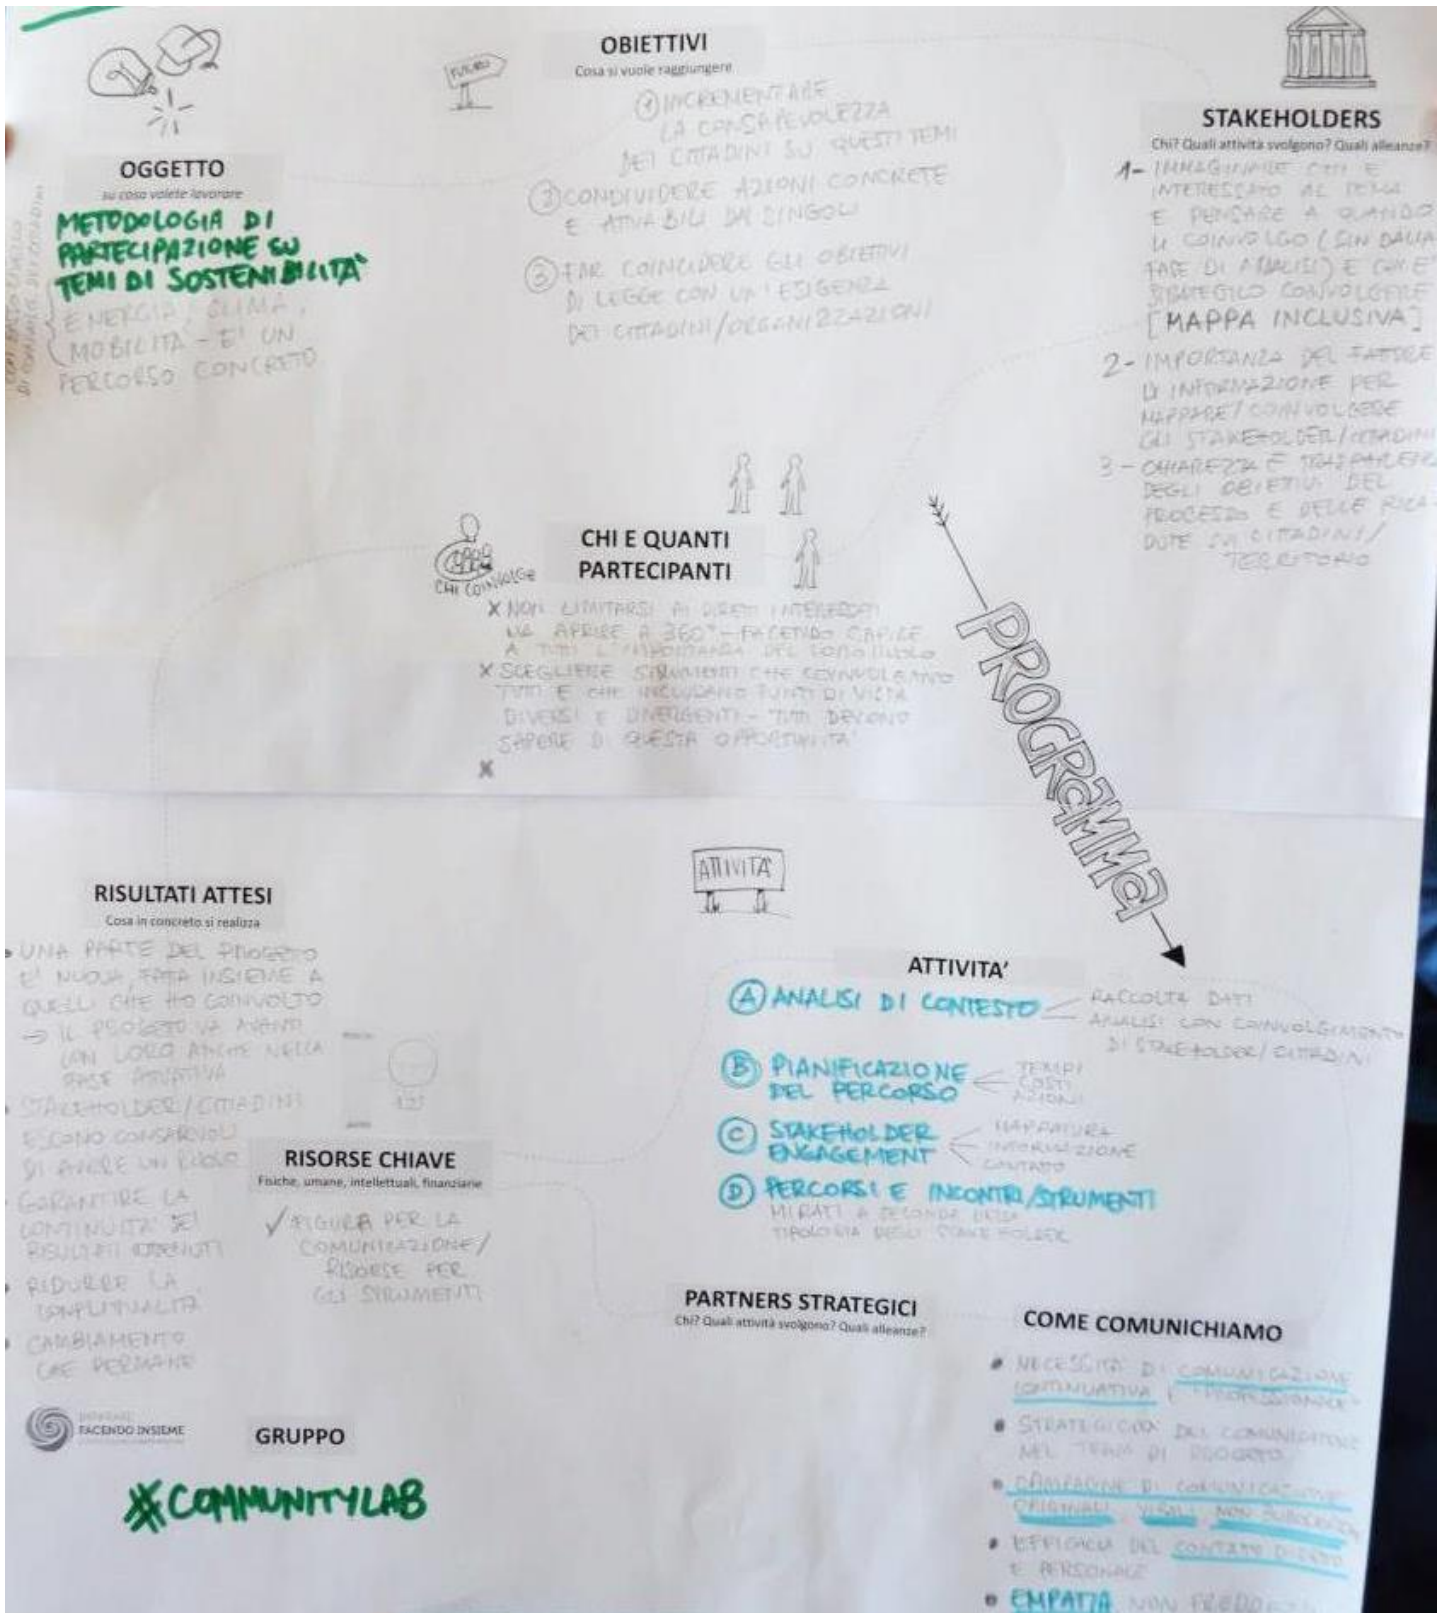 OGGETTO
su cosa volete lavorare
METODOLOGIA DI
PARTECIPAZIONE SU
TEMI DI SOSTENIBILITA'
ENERGIA, CLIMA,
MOBILITA' - E' UN
PERCORSO CONCRETO
FUTURO
OBIETTIVI
Cosa si vuole raggiungere
① INCREMENTARE
LA CONSAPEVOLEZZA
DEI CITTADINI SU QUESTI TEMI
② CONDIVIDERE AZIONI CONCRETE
E ATTIVABILI DAI SINGOLI
③ FAR COINCIDERE GLI OBIETTIVI
DI LEGGE CON UN'ESIGENZA
DEI CITTADINI/ORGANIZZAZIONI
STAKEHOLDERS
Chi? Quali attività svolgono? Quali alleanze?
1- IMMAGINARE CHI E'
INTERESSATO AL TEMA
E PENSARE A QUANDO
LI COINVOLGO (SIN DALLA
FASE DI ANALISI) E CHI E'
STRATEGICO COINVOLGERE
[MAPPA INCLUSIVA]
2- IMPORTANZA DEL FATTORE
INFORMAZIONE PER
MAPPARE/COINVOLGERE
GLI STAKEHOLDER/CITTADINI
3- CHIAREZZA E TRASPARENZA
DEGLI OBIETTIVI DEL
PROCESSO E DELLE RICA-
DUTE SU CITTADINI/
TERRITORIO
CHI COINVOLGE
CHI E QUANTI
PARTECIPANTI
X NON LIMITARSI AI DIRETTI INTERESSATI
MA APRIRE A 360° - FACENDO CAPIRE
A TUTTI L'IMPORTANZA DEL LORO RUOLO
X SCEGLIERE STRUMENTI CHE COINVOLGANO
TUTTI E CHE INCLUDANO PUNTI DI VISTA
DIVERSI E DIVERGENTI - TUTTI DEVONO
SAPERE DI QUESTA OPPORTUNITA'
X
PROGRAMMA
RISULTATI ATTESI
Cosa in concreto si realizza
• UNA PARTE DEL PROGETTO
E' NUOVA, FATTA INSIEME A
QUELLI CHE HO COINVOLTO
→ IL PROGETTO VA AVANTI
CON LORO ANCHE NELLA
FASE ATTUATIVA
• STAKEHOLDER/CITTADINI
ESCONO CONSAPEVOLI
DI AVERE UN RUOLO
• GARANTIRE LA
CONTINUITA' DEI
RISULTATI OTTENUTI
• RIDURRE LA
CONFLITTUALITA'
• CAMBIAMENTO
CHE PERMANE
RISORSE CHIAVE
Fisiche, umane, intellettuali, finanziarie
✓ FIGURA PER LA
COMUNICAZIONE/
RISORSE PER
GLI STRUMENTI
ATTIVITA'
ATTIVITA'
Ⓐ ANALISI DI CONTESTO
RACCOLTA DATI
ANALISI CON COINVOLGIMENTO
DI STAKEHOLDER/CITTADINI
Ⓑ PIANIFICAZIONE
DEL PERCORSO
TEMPI
COSTI
AZIONI
Ⓒ STAKEHOLDER
ENGAGEMENT
MAPPATURA
INFORMAZIONE
CONTATTO
Ⓓ PERCORSI E INCONTRI/STRUMENTI
MIRATI A SECONDA DELLA
TIPOLOGIA DEGLI STAKEHOLDER
PARTNERS STRATEGICI
Chi? Quali attività svolgono? Quali alleanze?
COME COMUNICHIAMO
• NECESSITA' DI COMUNICAZIONE
CONTINUATIVA E "PROFESSIONALE"
• STRATEGICITA' DEL COMUNICATORE
NEL TEAM DI PROGETTO
• CAMPAGNE DI COMUNICAZIONE
ORIGINALI, VISALI, NON
• EFFICACIA DEL CONTATTO DIRETTO
E PERSONALE
• EMPATIA NON
IMPARARE
FACENDO INSIEME
GRUPPO
#COMMUNITYLAB